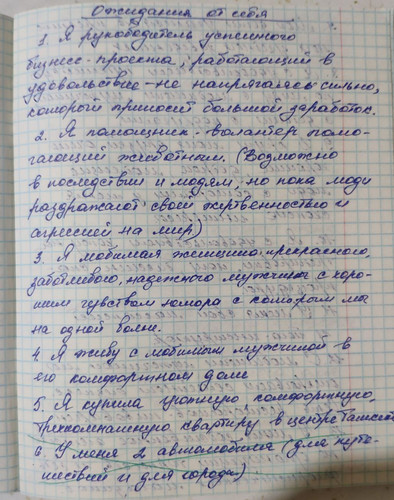 Ожидания от себя
1. Я руководитель успешного
бизнес-проекта, работающий в
удовольствие не напрягаясь сильно,
который приносит большой заработок.
2. Я помощник-волантер помо-
гающий животным. (Возможно
в последствии и людям, но пока люди
раздражают своей жертвенностью и
агрессией на мир)
3. Я любимая женщина прекрасного,
заботливого, надежного мужчины с хоро-
шим чувством юмора с которым мы
на одной волне.
4 Я живу с любимым мужчиной в
его комфортном доме
5. Я купила уютную комфортную,
трехкомнатную квартиру в центре
6. У меня 2 автомобиля (для путе-
шествий и для города)